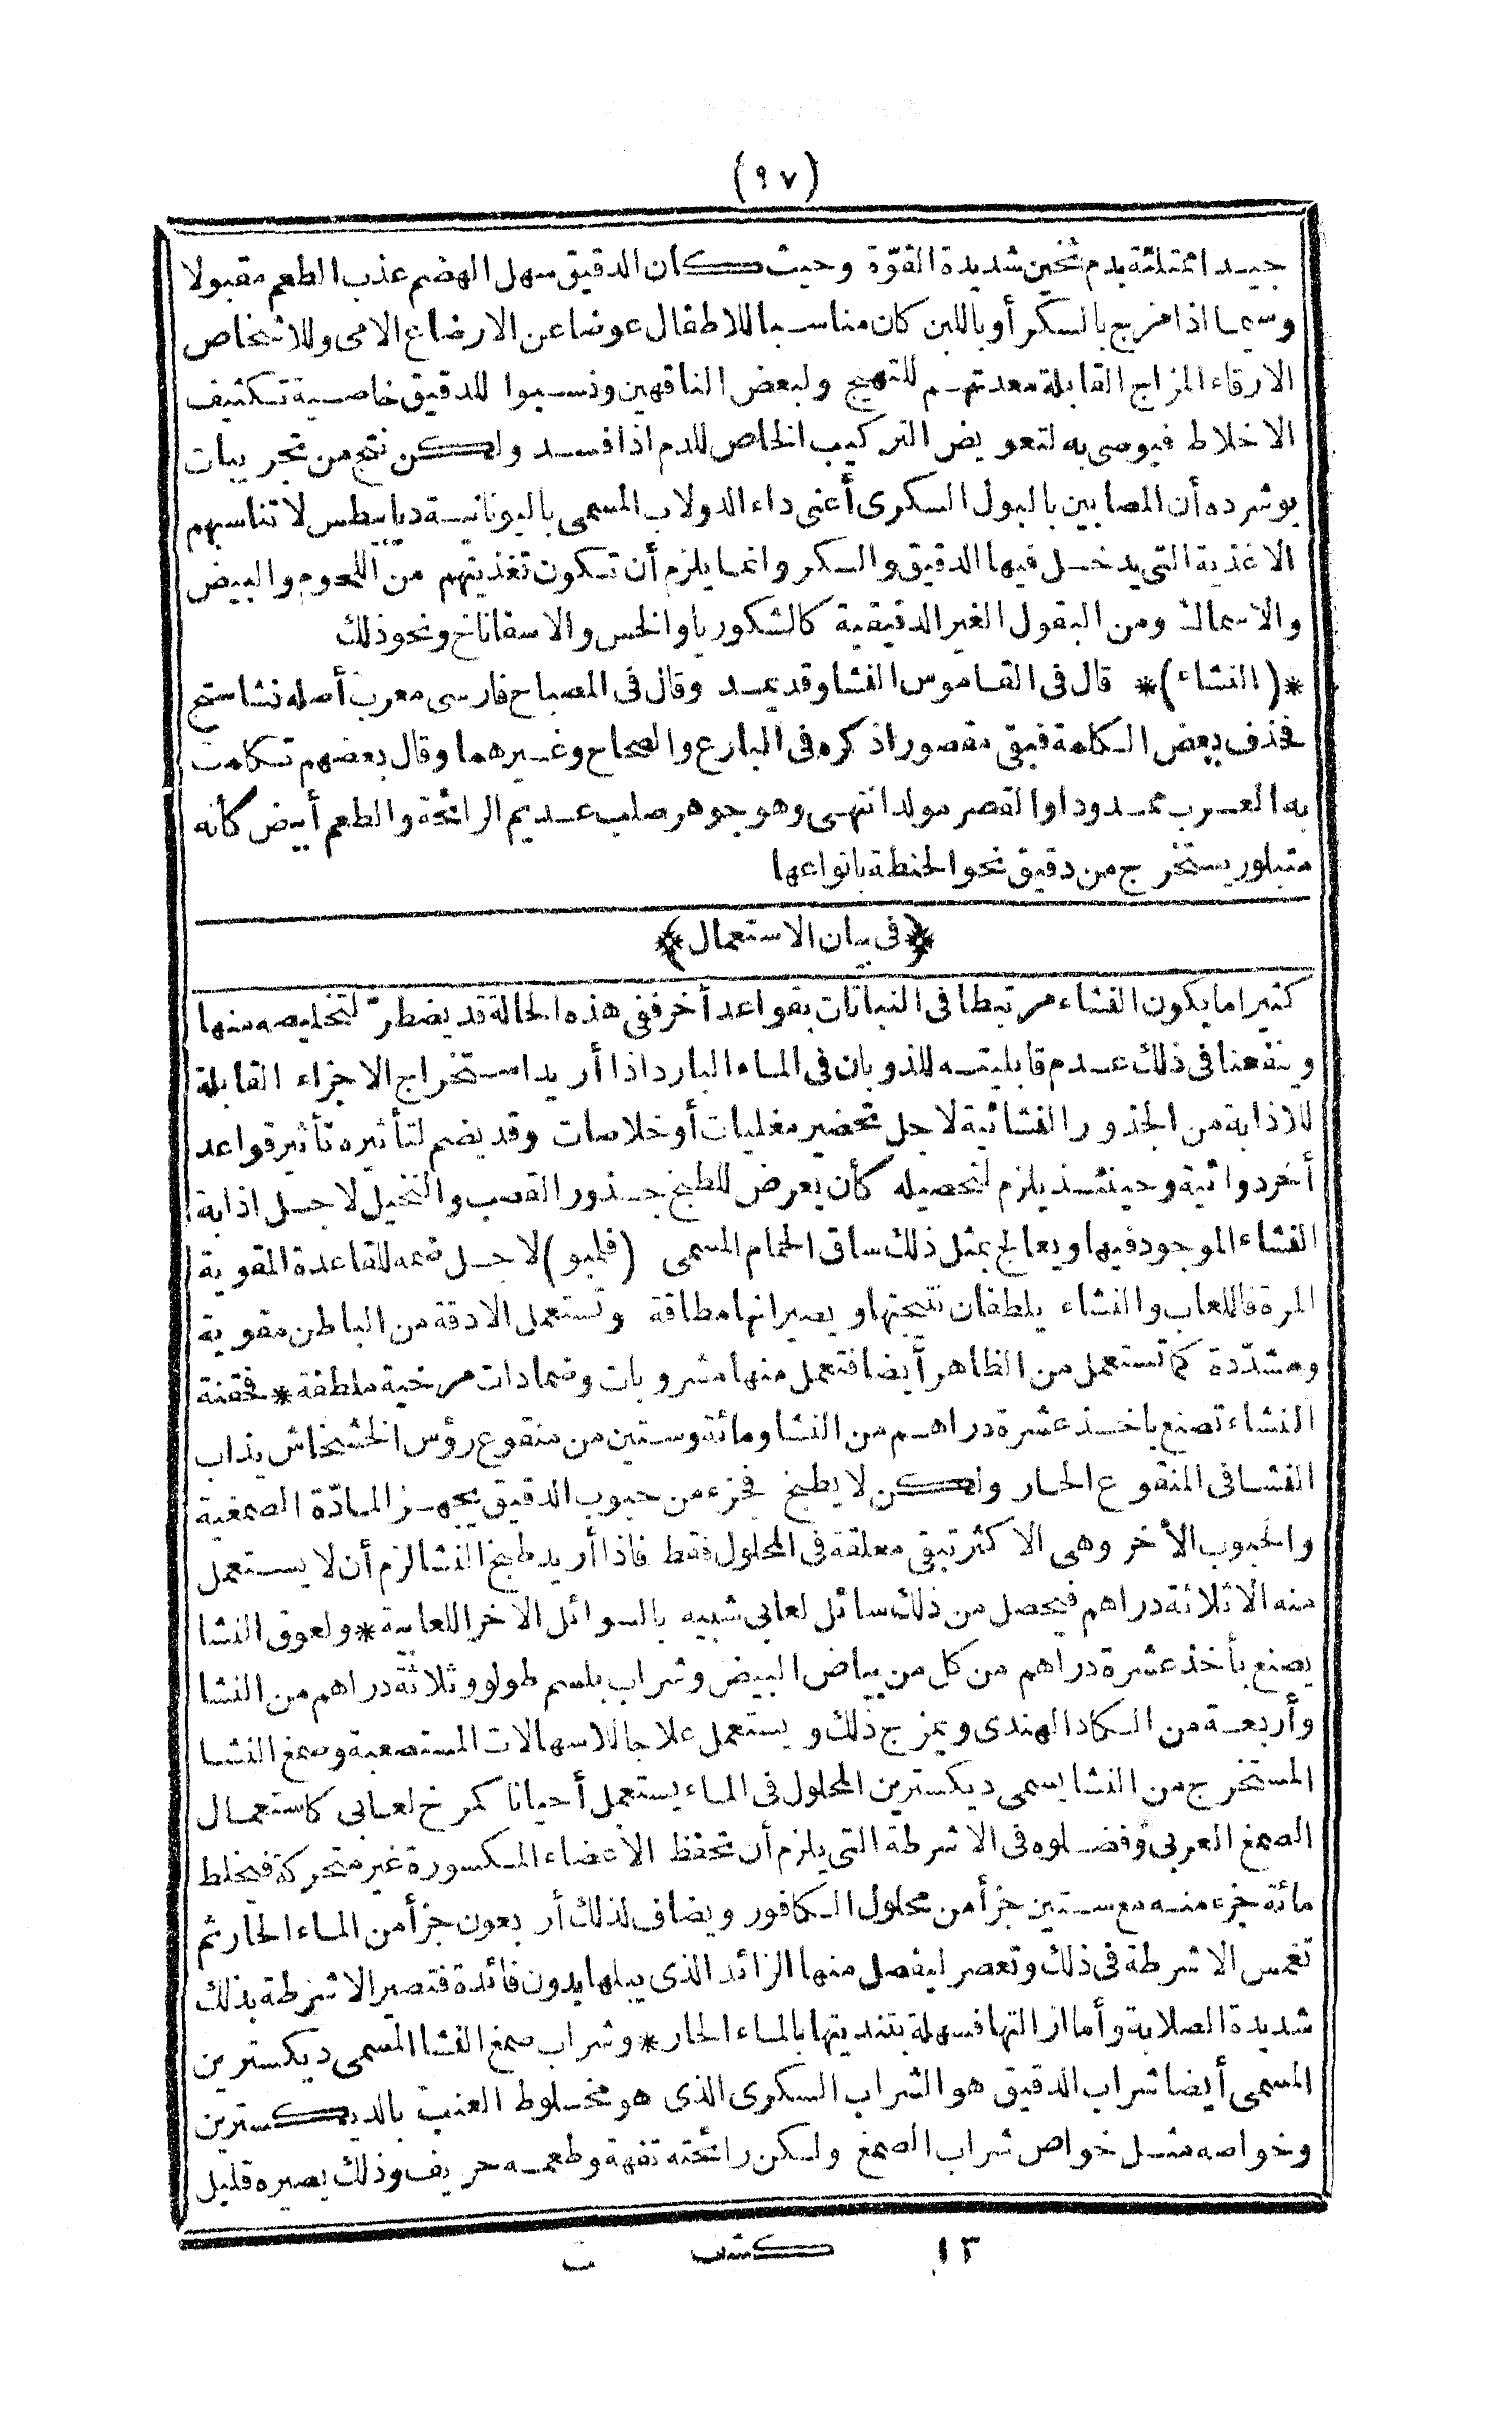 (٩٧)
جيدا ممتلئة بدم ثخين شديدة القوّة وحيث كان الدقيق سهل الهضم عذب الطعم مقبولا
وسيما اذا مزج بالسكر أو باللبن كان مناسبا للاطفال عوضا عن الارضاع الامى وللاشخاص
الارقاء المزاج القابلة معدتهم للتهيج ولبعض الناقهين ونسبوا للدقيق خاصية تكثيف
الاخلاط فيوصى به لتعويض التركيب الخاص للدم اذا فسد ولكن نتج من تجربيات
بوشرده أن المصابين بالبول السكرى أعنى داء الدولاب المسمى باليونانية ديابيطس لا تناسبهم
الاغذية التى يدخل فيها الدقيق والسكر وانما يلزم أن تكون تغذيتهم من اللحوم والبيض
والاسماك ومن البقول الغير الدقيقية كالشكوريا والخس والاسفاناخ ونحو ذلك
*(النشاء)* قال فى القاموس النشا وقد يمد وقال فى المصباح فارسى معرب أصله نشاستج
فحذف بعض الكلمة فبقى مقصورا ذكره فى البارع والصحاح وغيرهما وقال بعضهم تكلمت
به العرب ممدودا والقصر مولد انتهى وهو جوهر صلب عديم الرائحة والطعم أبيض كأنه
متبلور يستخرج من دقيق نحو الحنطة بانواعها
*(فى بيان الاستعمال)*
كثيرا ما يكون النشاء مرتبطا فى النباتات بقواعد أخر ففى هذه الحالة قد يضطرّ لتخليصه منها
وينفعنا فى ذلك عدم قابليته للذوبان فى الماء البارد اذا أريد استخراج الاجزاء القابلة
للاذابة من الجذور النشائية لاجل تحضير مغليات أو خلاصات وقد يضم لتأثيره تأثير قواعد
أخر دوائية وحينئذ يلزم لتحصيله كأن يعرض للطبخ جذور القصب والنخيل لاجل اذابة
النشاء الموجود فيها ويعالج بمثل ذلك ساق الحمام المسمى (قلمبو) لاجل ضمه للقاعدة المقوية
المرة فاللعاب والنشاء يلطفان نتيجتها ويصيرانها مطاقة وتستعمل الادقة من الباطن مقوية
ومشدّدة كما تستعمل من الظاهر أيضا فتعمل منها مشروبات وضمادات مرخية ملطفة * فحقنة
النشاء تصنع باخذ عشرة دراهم من النشا ومائة وستين من منقوع رؤس الخشخاش يذاب
النشا فى المنقوع الحار ولكن لا يطبخ فجزء من حبوب الدقيق يجهز المادّة الصمغية
والحبوب الأخر وهى الاكثر تبقى معلقة فى المحلول فقط فاذا أريد طبخ النشا لزم أن لا يستعمل
منه الا ثلاثة دراهم فيحصل من ذلك سائل لعابى شبيه بالسوائل الاخر اللعابية * ولعوق النشا
يصنع بأخذ عشرة دراهم من كل من بياض البيض وشراب بلسم طولو وثلاثة دراهم من النشا
وأربعة من الكاد الهندى ويمزج ذلك ويستعمل علاجا للاسهالات المستصعبة وصمغ النشا
المستخرج من النشا يسمى ديكسترين المحلول فى الماء يستعمل أحيانا كمرخ لعابى كاستعمال
الصمغ العربى وفضلوه فى الاشرطة التى يلزم أن تحفظ الأعضاء المكسورة غير متحركة فيخلط
مائة جزء منه مع ستين جزأ من محلول الكافور ويضاف لذلك أربعون جزأ من الماء الحار ثم
تغمس الاشرطة فى ذلك وتعصر ليفصل منها الزائد الذى يبلها بدون فائدة فتصير الاشرطة بذلك
شديدة الصلابة وأما ازالتها فسهلة بتنديتها بالماء الحار * وشراب صمغ النشا المسمى ديكسترين
المسمى أيضا شراب الدقيق هو الشراب السكرى الذى هو مخلوط العنب بالديكسترين
وخواصه مثل خواص شراب الصمغ ولكن رائحته تفهة وطعمه حريف وذلك يصيره قليل
١٣ كشب ت